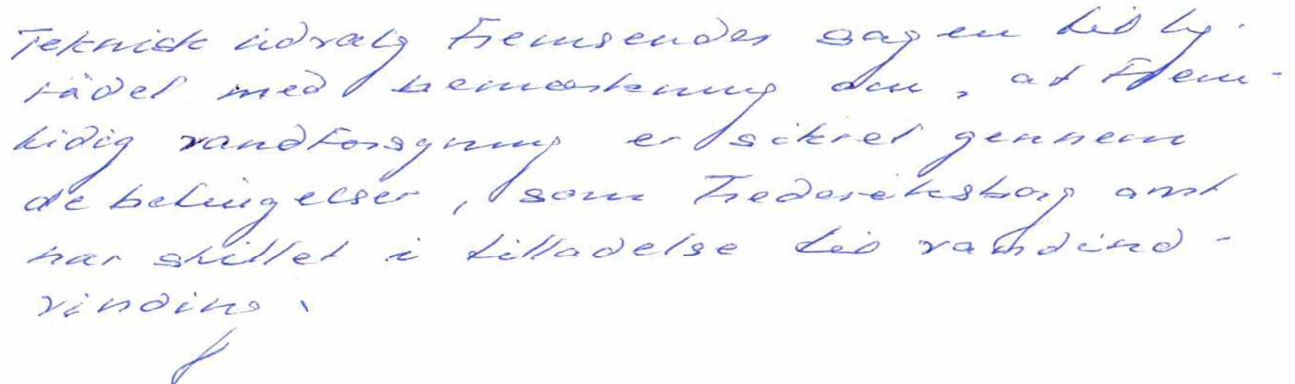 Teknisk udvalg fremsender sagen til by-
rådet med bemærkning om, at frem-
tidig vandforsyning er sikret gennem
de betingelser, som Frederiksborg amt
har stillet i tilladelse til vandind-
vinding.